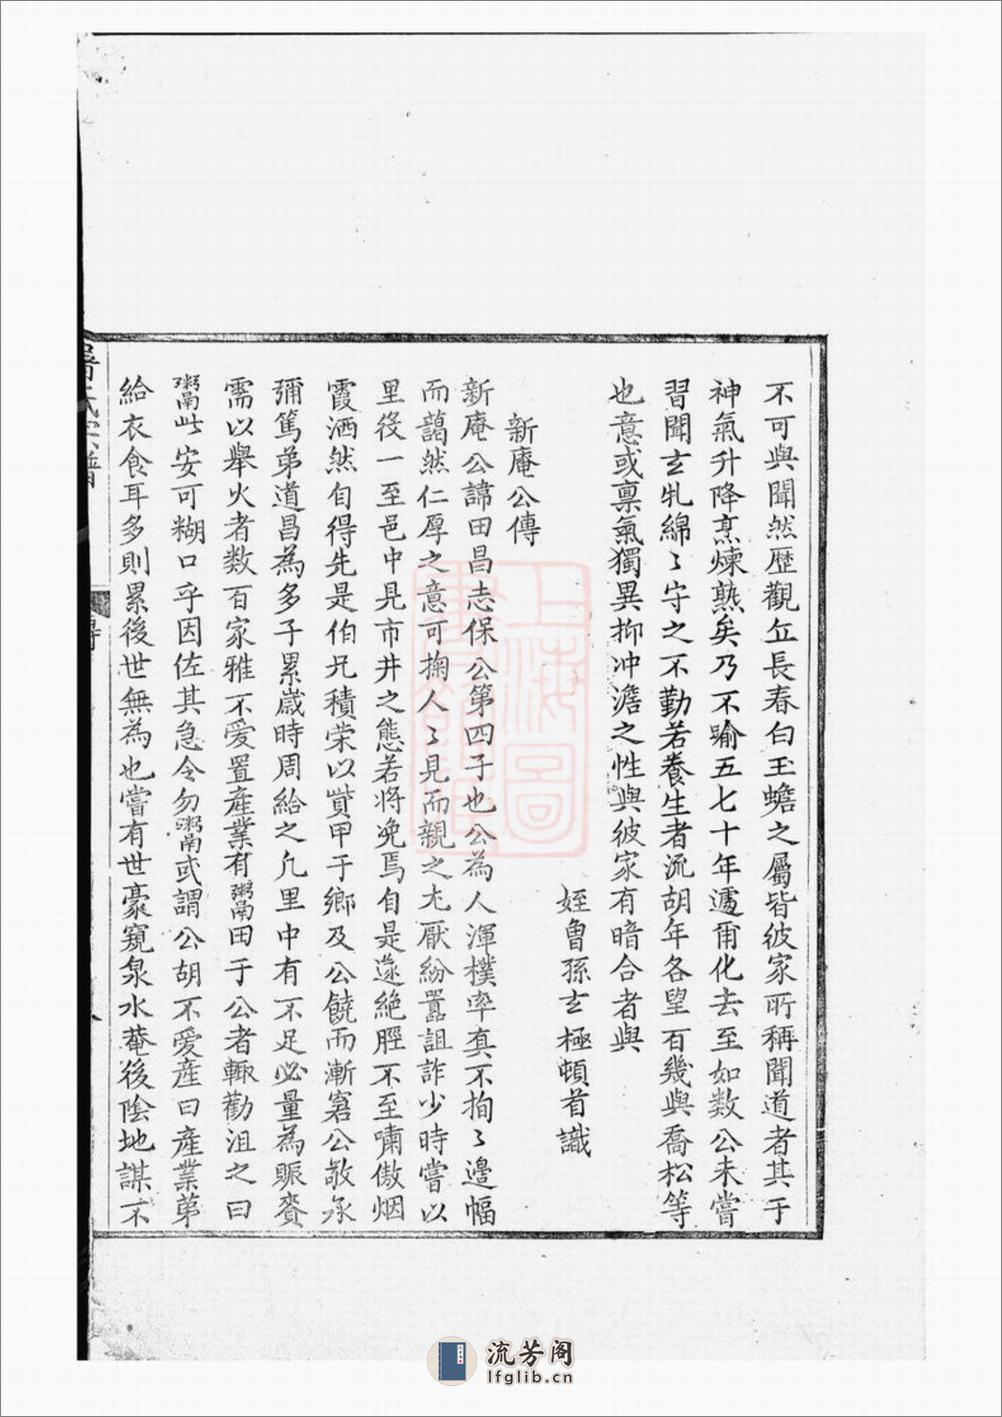 不可與聞然歷觀丘長春白玉蟾之屬皆彼家所稱聞道者其于
神氣升降烹煉熟矣乃不踰五七十年遽爾化去至如数公未嘗
習聞玄牝綿〻守之不勤若養生者流胡年各望百幾與喬松等
也意或稟氣獨異抑冲澹之性與彼家有暗合者與
姪曾孫玄極頓首識
新庵公傳
新庵公諱田昌志保公第四子也公為人渾樸率真不拘〻邊幅
而藹然仁厚之意可掬人〻見而親之尤厭紛囂詛詐少時嘗以
里役一至邑中見市井之態若将浼焉自是遂絶脛不至嘯傲烟
霞洒然自得先是伯兄積荣以貲甲于鄉及公饒而漸窘公敬承
彌篤弟道昌為多子累歲時周給之凡里中有不足必量為賑賚
需以舉火者数百家雅不爱置産業有粥田于公者輒勸沮之曰
粥此安可糊口乎因佐其急令勿粥或謂公胡不爱産曰産業苐
給衣食耳多則累後世無為也嘗有世豪窺泉水菴後陰地謀不
上海圖書館藏
流芳阁
lfglib.cn